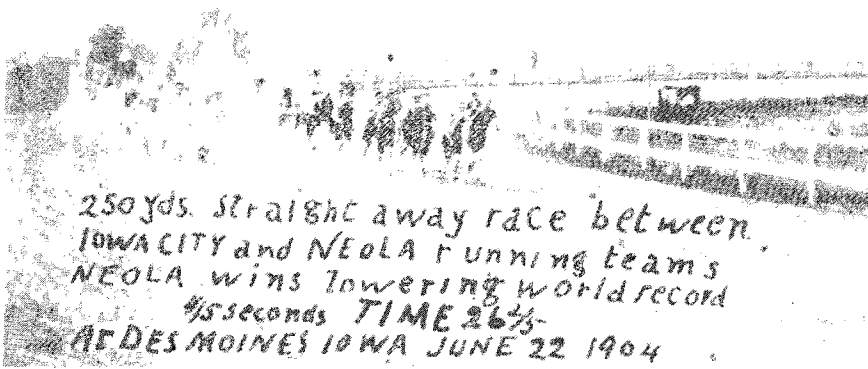 250 yds. Straight away race between
IOWA CITY and NEOLA running teams
NEOLA wins lowering world record
4/5 seconds TIME 26 2/5
AT DES MOINES IOWA JUNE 22 1904